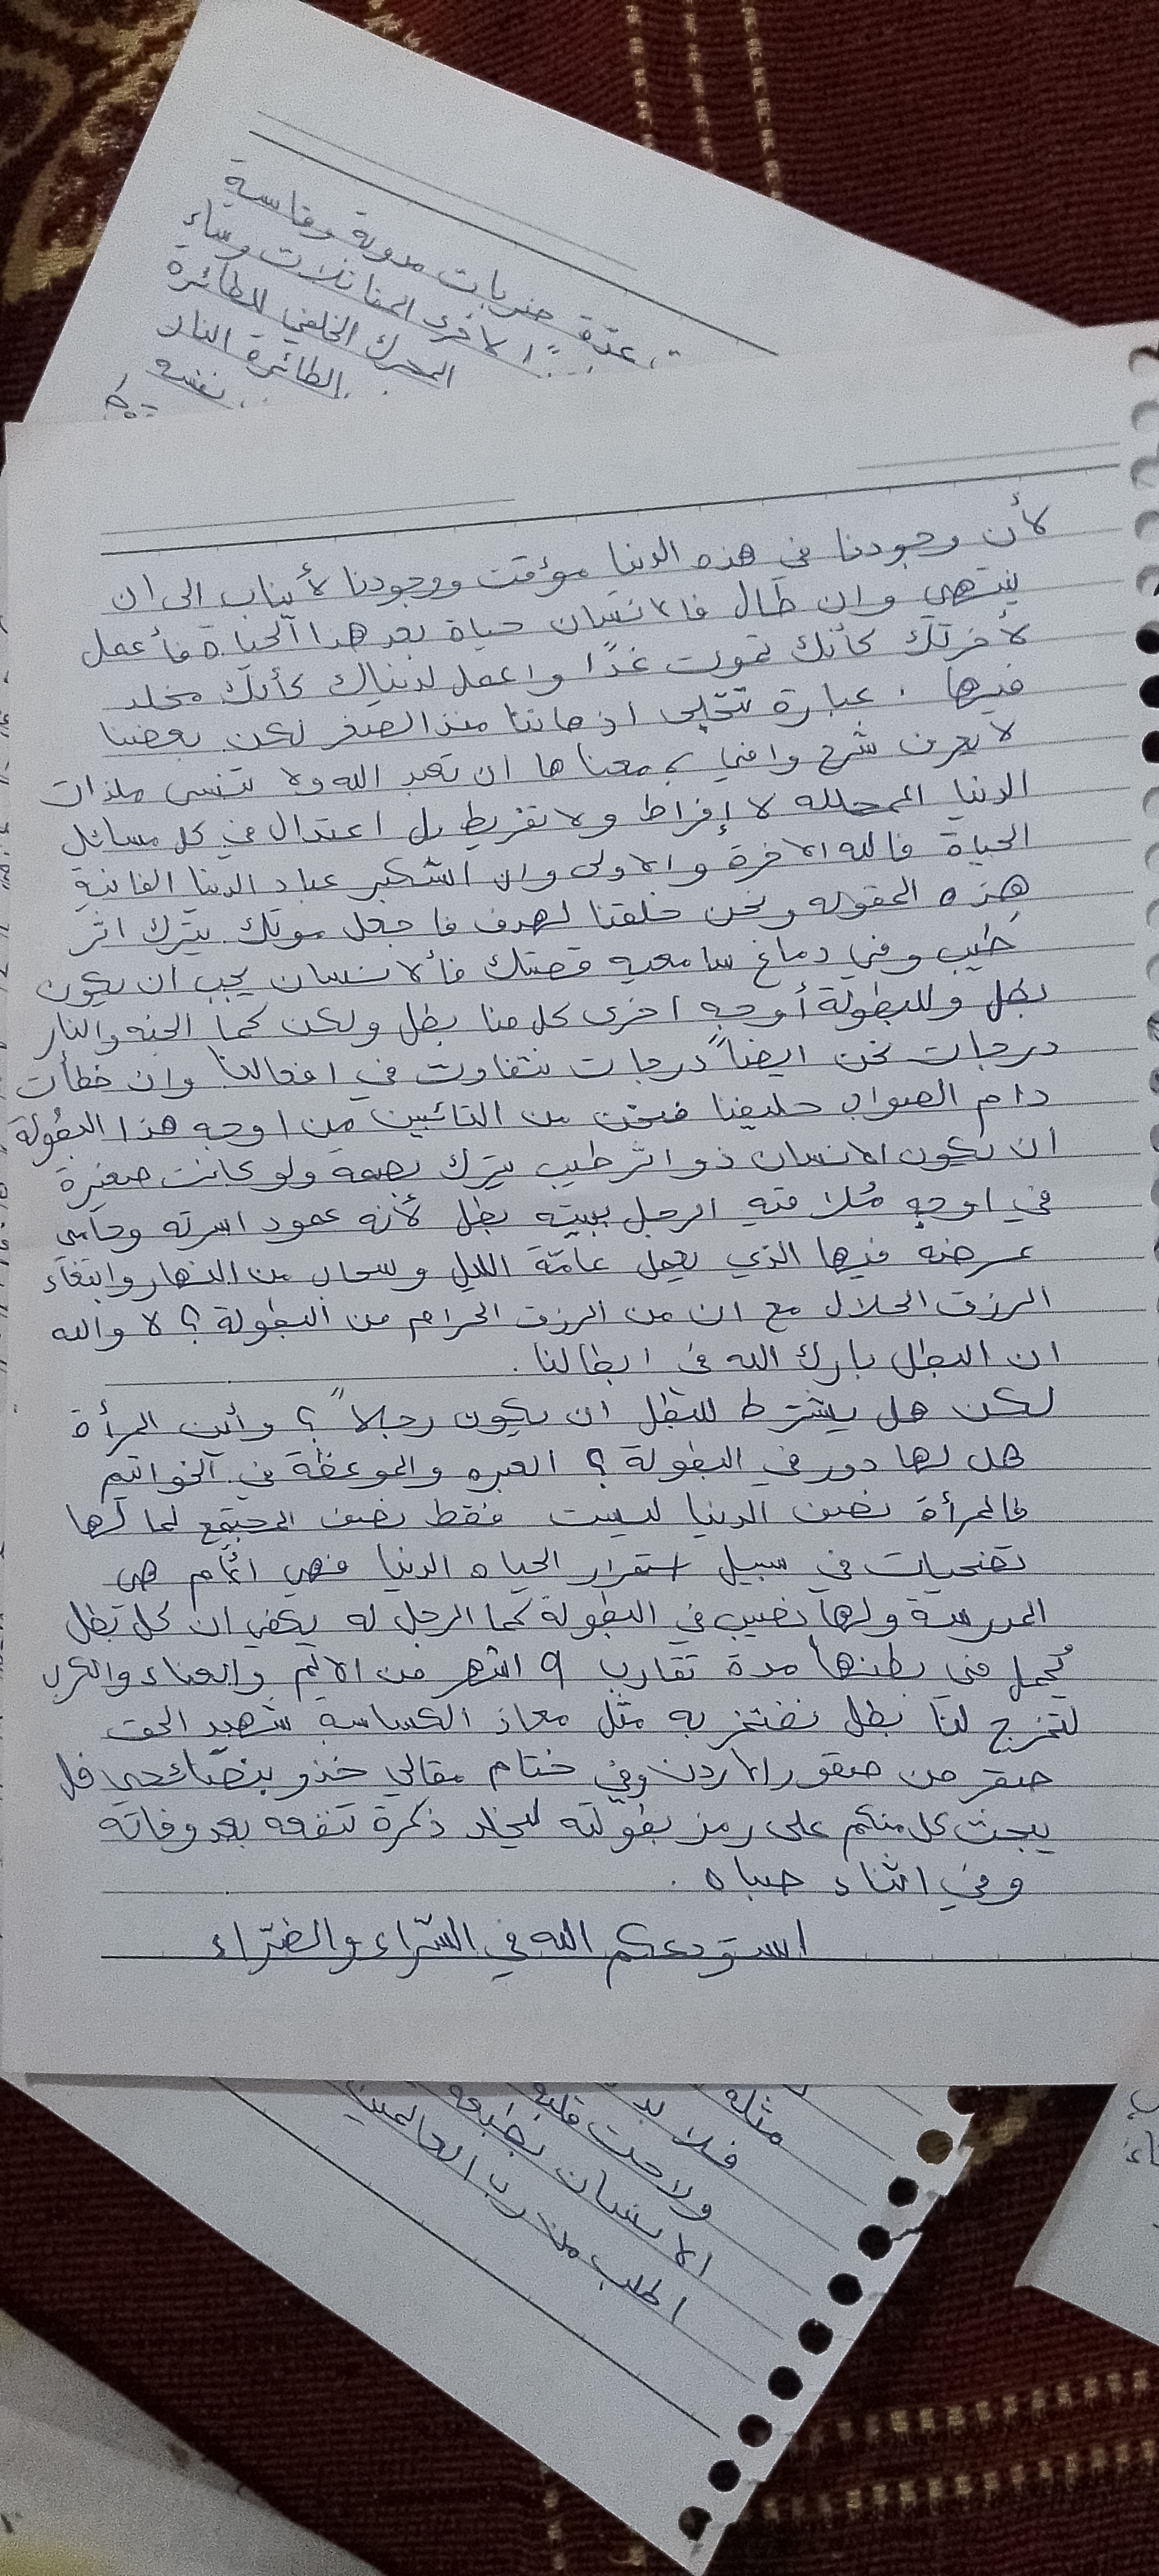 عدة ضربات مدوية وقاسية
لاخرى المقاتلات وساء
المحرك الخلفي للطائرة
الطائرة النار
نفسه
لأن وجودنا في هذه الدنيا مؤقت ووجودنا لأيباب الى ان
ينتهي وان طال فالانسان حياة بعد هدا الحياة فأعمل
لأخرتك كأنك تموت غدًا واعمل لدنياك كأنك مخلد
فيها . عبارة تتخلى اذهاننا منذ الصغر لكن بعضنا
لا يعرف شرح وافي ، معناها ان تعبد الله ولا تنسى ملذات
الدنيا المحلله لا إفراط ولا تفريط بل اعتدال في كل مسائل
الحياة فالله الاخرة والاولى وان استكبر عباد الدنيا الفانية
هذه المقوله ونحن خلقنا لهدف فا جعل موتك يترك اثر
طيب وفي دماغ سامعيه قصتك فألانسان يجب ان يكون
بطل وللبطولة أوجه اخرى كل منا بطل ولكن كما الجنه والنار
درجات نحن ايضاً درجات نتفاوت في افعالنا وان خطأت
دام الصواب حليفنا فنحن من التائبين من اوجه هذا البطولة
ان يكون الانسان ذو اثر طيب يترك بصمة ولو كانت صغيرة
في اوجه مُلاقيه الرجل ببيته بطل لأنه عمود اسرته وحامي
عرضه فيها الذي يعمل عامّة الليل وسحاب من النهار وابتغاء
الرزق الحلال مع ان من الرزق الحرام من البطولة ؟ لا والله
ان البطل بارك الله في ابطالنا .
لكن هل يشترط للبطل ان يكون رجلاً ؟ وأين المرأة
هل لها دور في البطولة ؟ العبره والموعظة في الخواتيم
فالمرأة نصف الدنيا ليست فقط نصف المجتمع لما لها
تضحيات في سبيل استقرار الحياه الدنيا فهي الأم هي
المدرسة ولها نصيب في البطولة كما الرجل له يكفي ان كل بطل
يُحمل في بطنها مدة تقارب 9 اشهر من الالم والعناء والكرب
لتخرج لنا بطل نفتخر به مثل معاذ الكساسبة شهيد الحق
صقر من صقور الاردن وفي ختام مقالي خذو بنصائحي فل
يبحث كل منكم على رمز بطولته ليخلد ذكرة تنفعه بعد وفاته
وفي اثناء حياه .
استودعكم الله في السّراء والضرّاء
مثله
ولا حت قلبه
الانسان بطبعه
اطلب من رب العالمين